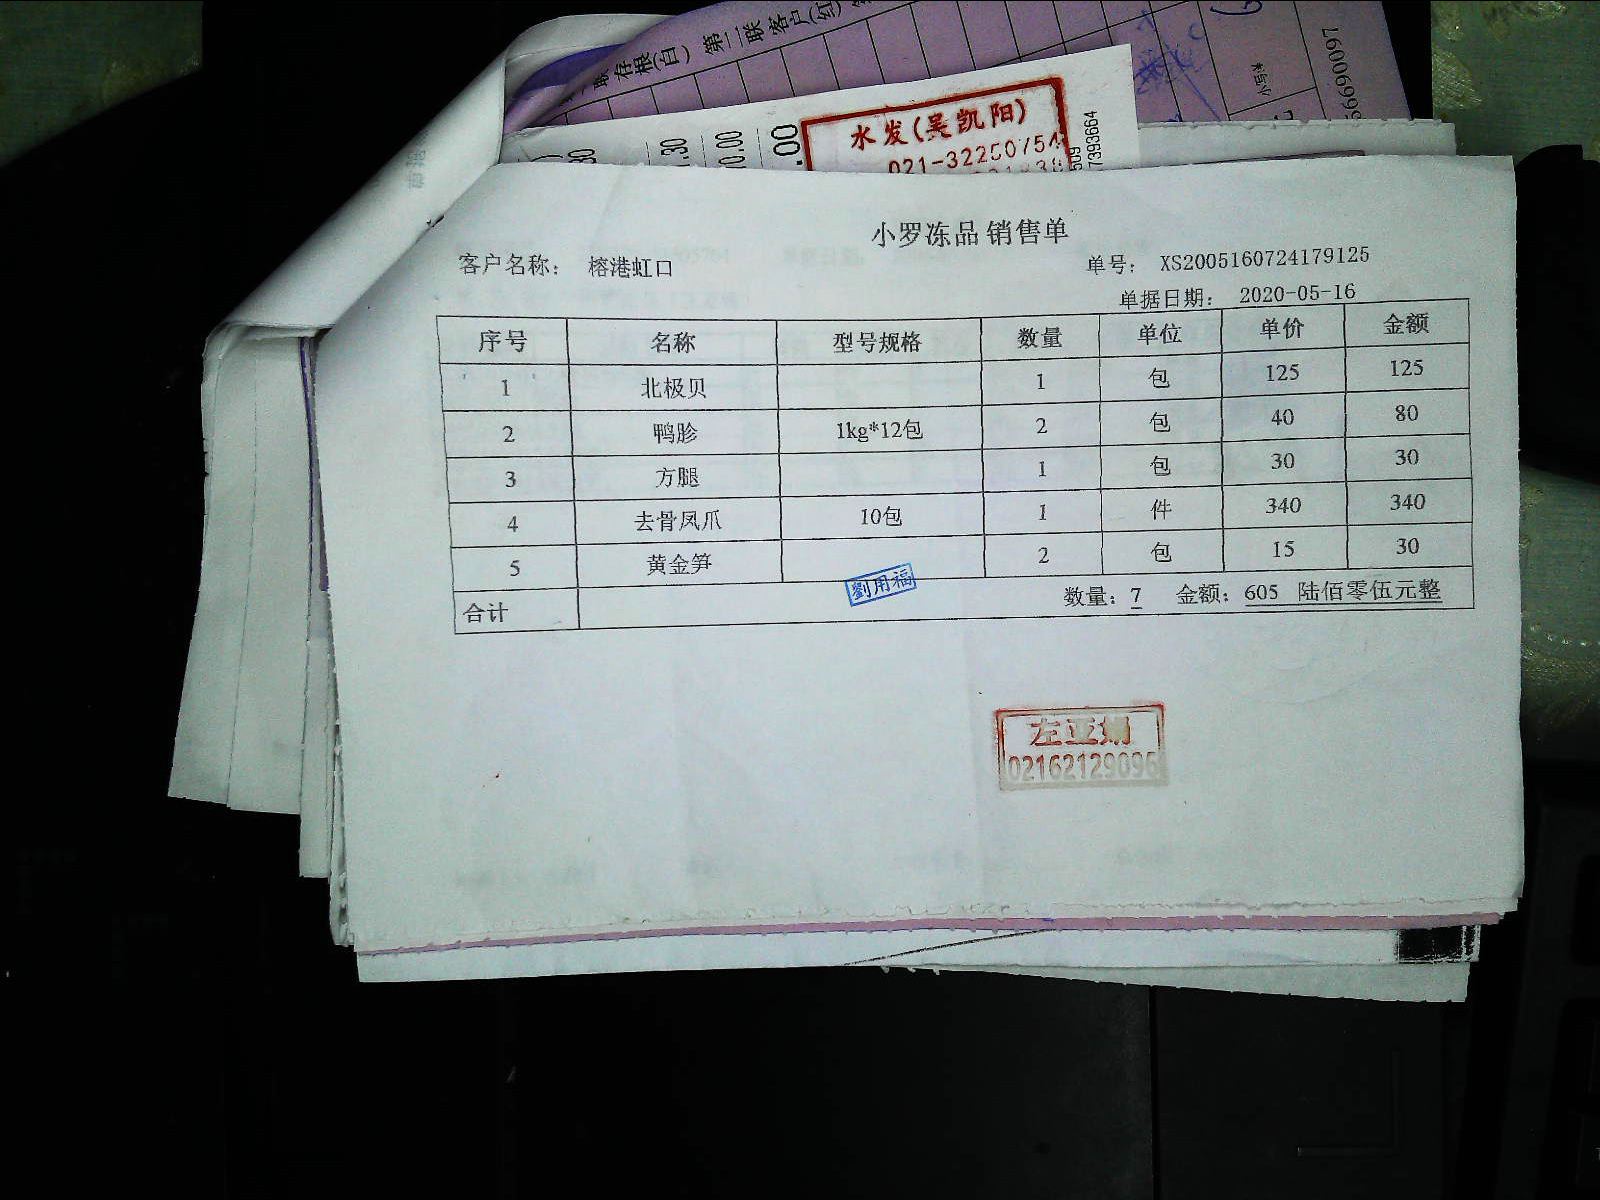 存根(白) 第二联客户(红)
小写¥
5690097
.30
0.00
.00
水发(吴凯阳)
021-32250754
7393664
小罗冻品 销售单
客户名称： 榕港虹口 单号： XS2005160724179125
单据日期： 2020-05-16
序号 名称 型号规格 数量 单位 单价 金额
1 北极贝 1 包 125 125
2 鸭胗 1kg*12包 2 包 40 80
3 方腿 1 包 30 30
4 去骨凤爪 10包 1 件 340 340
5 黄金笋 2 包 15 30
劉用福
合计 数量：7 金额：605 陆佰零伍元整
左亚
02162129096